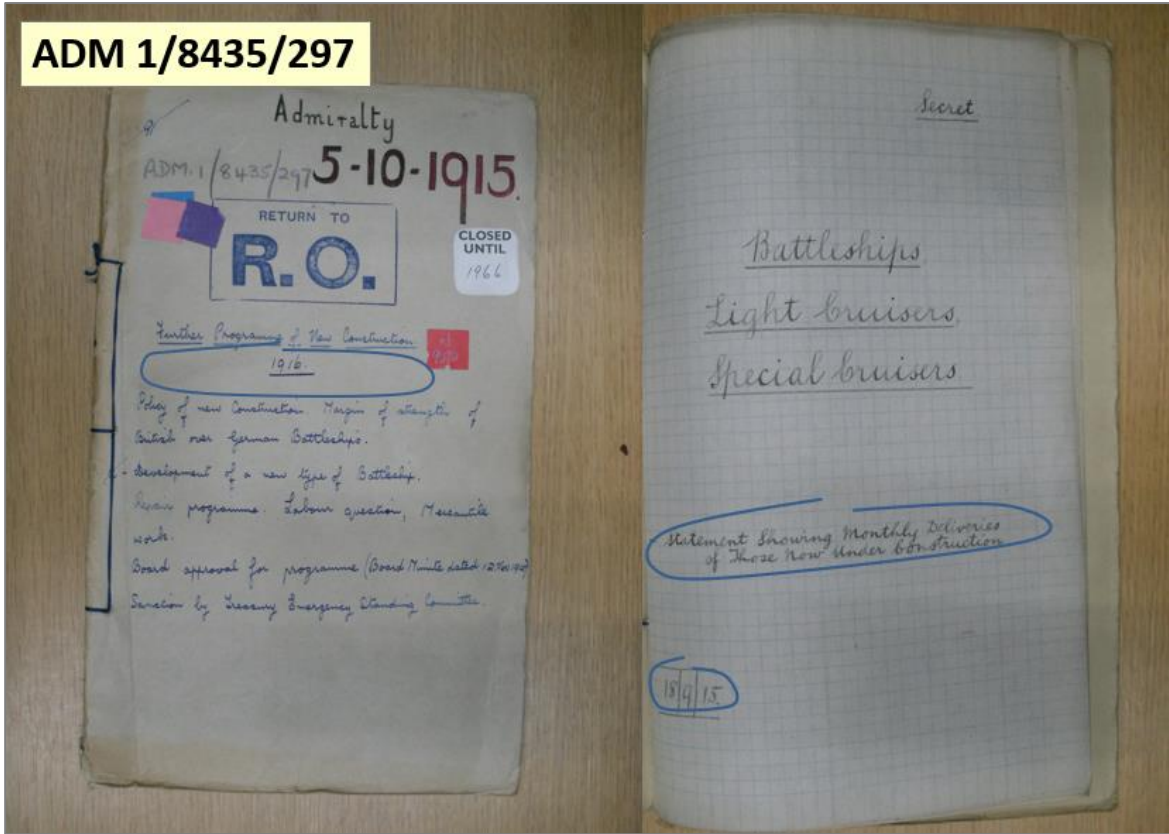 ADM 1/8435/297
91
Admiralty
ADM. 1/8435/297
5-10-1915.
RETURN TO
R.O.
CLOSED
UNTIL
1966
Further Programme of New Construction
1916.
Policy of new Construction. Margin of strength of
British over German Battleships.
Development of a new type of Battleship.
Repair programme. Labour question, Mercantile
work.
Board approval for programme (Board Minute dated
Sanction by Treasury Emergency Standing Committee.
Secret
Battleships
Light Cruisers,
Special Cruisers
Statement Showing Monthly Deliveries
of Those Now Under Construction
18|9|15.